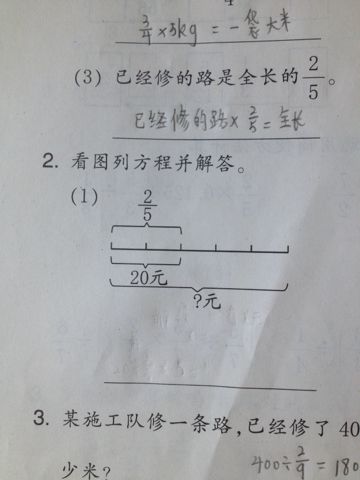 4
3/4 × 5kg = 一袋大米
(3) 已经修的路是全长的 2/5 。
已经修的路 × 2/5 = 全长
2. 看图列方程并解答。
(1) 2/5
20元
?元
3. 某施工队修一条路,已经修了 40
少米? 400÷2/9 = 180